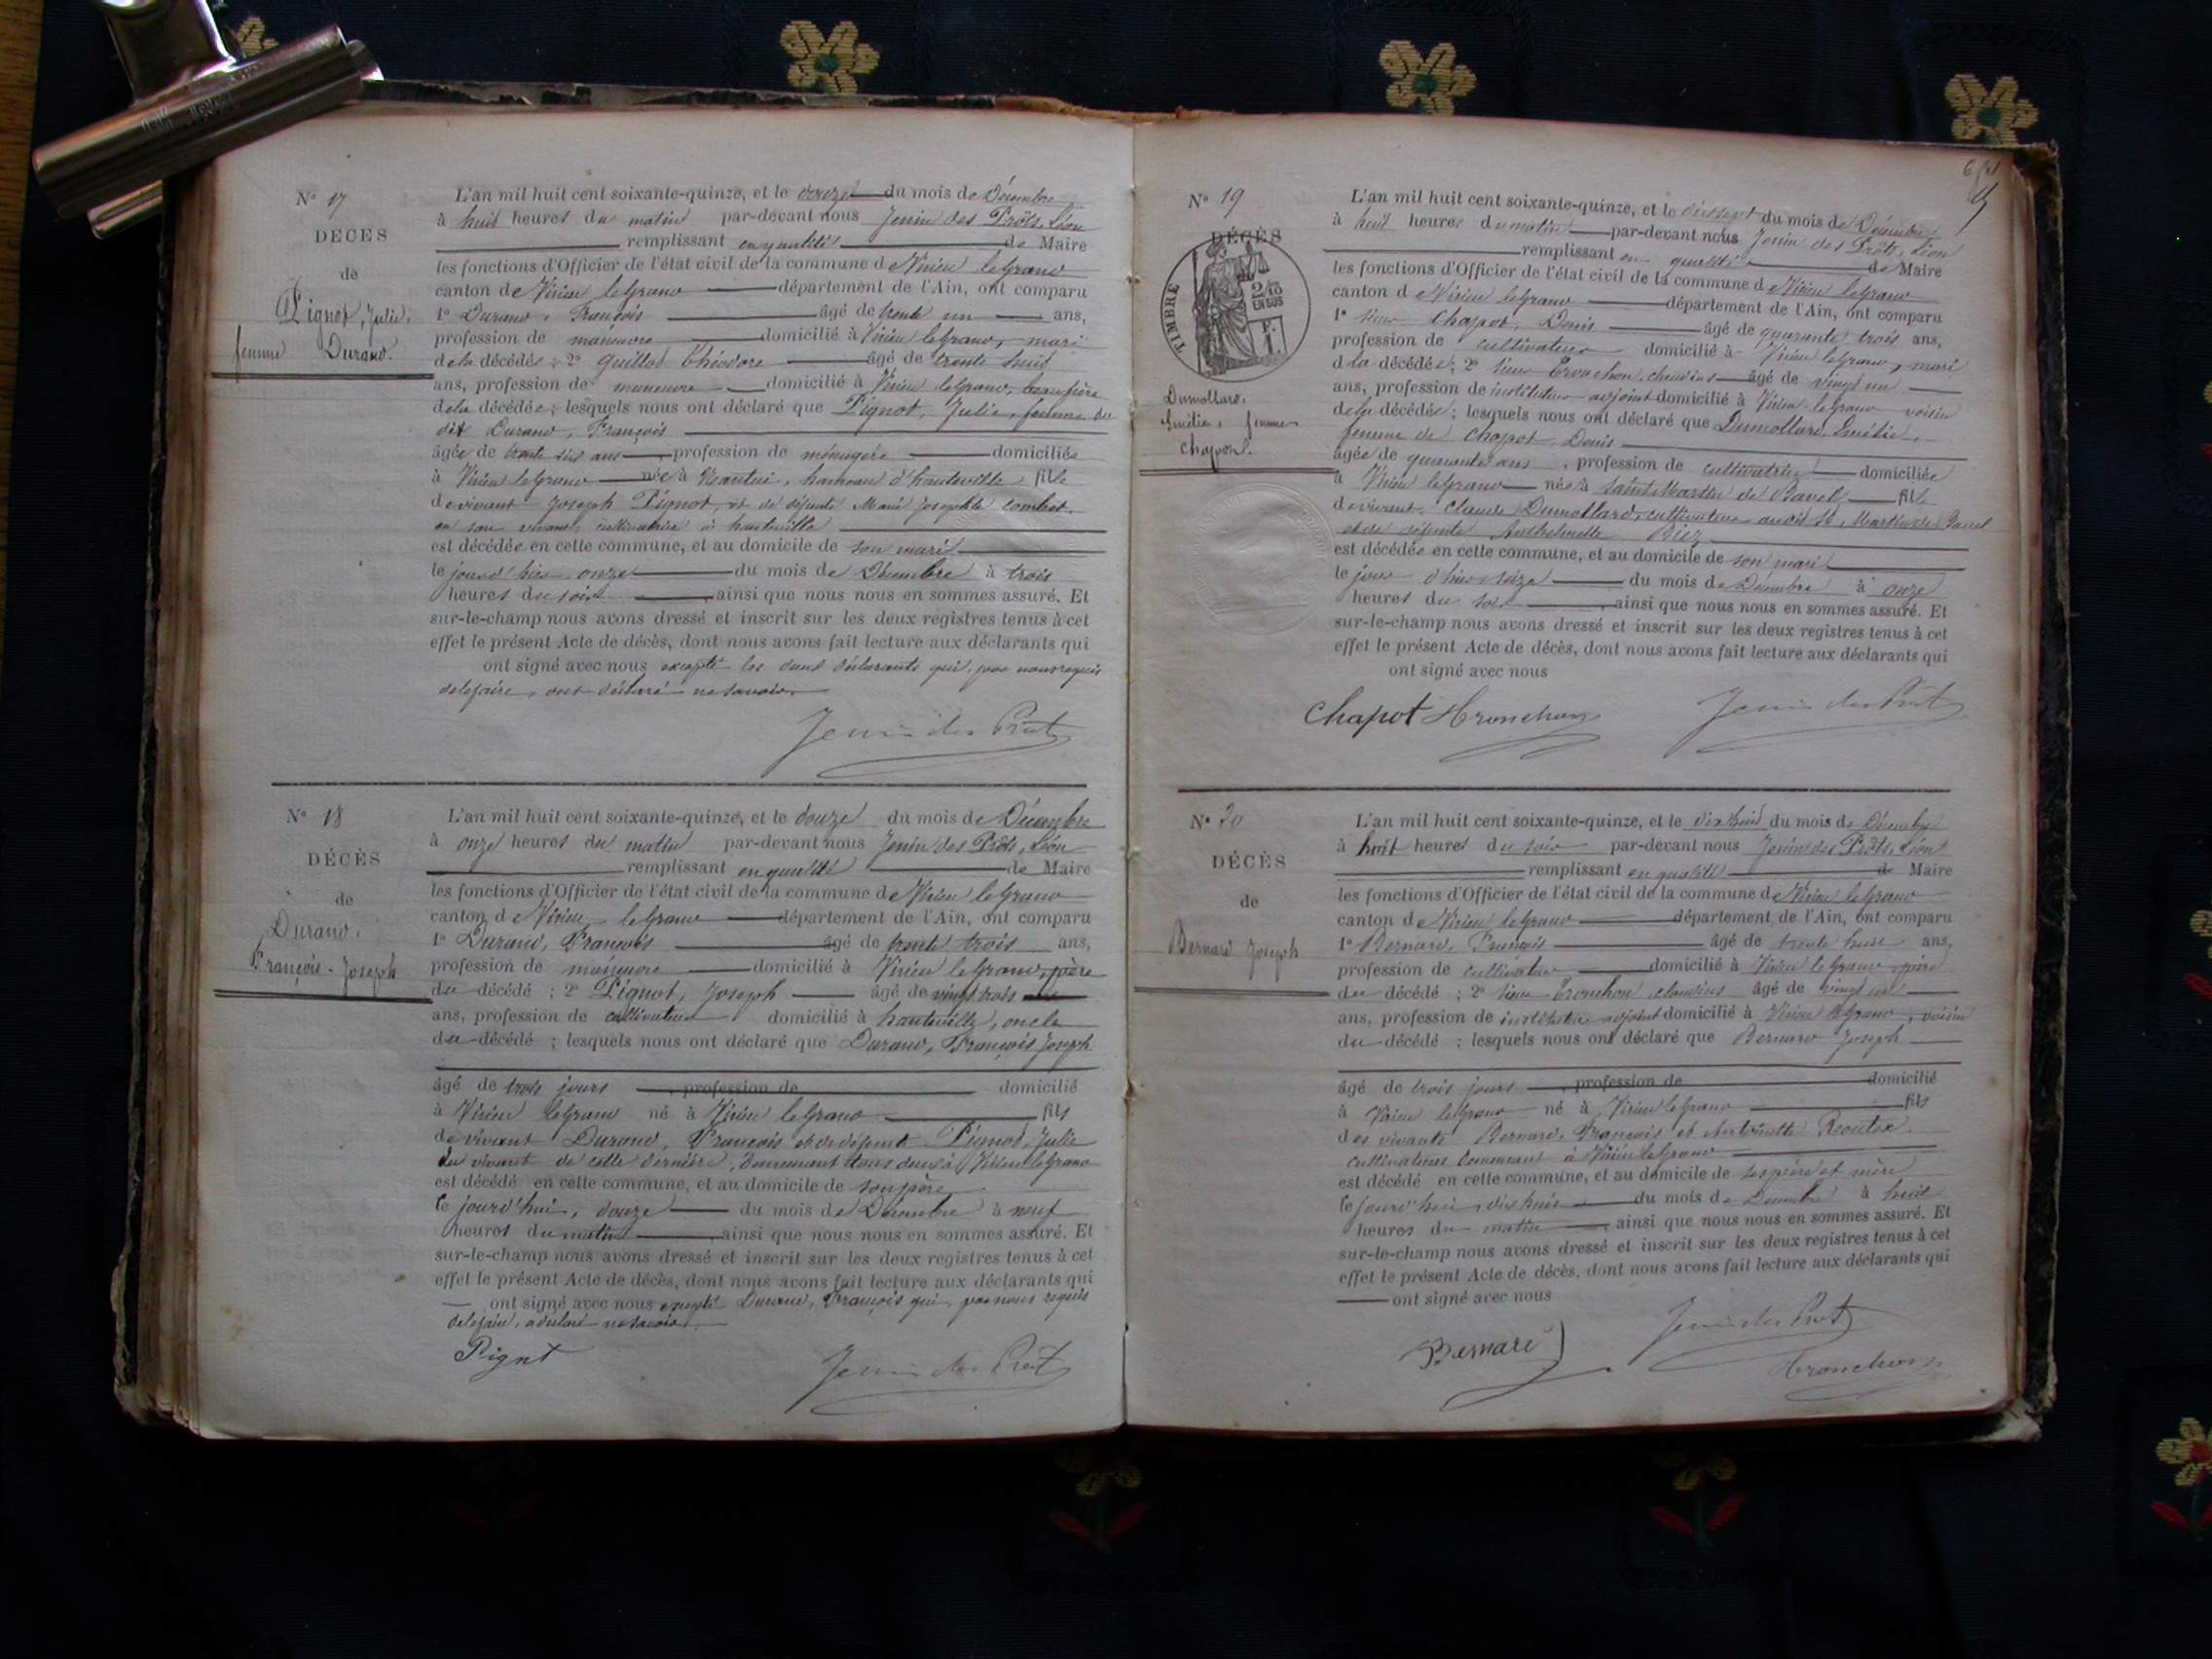 N° 17
DÉCÈS
de
Pignot, Julie,
femme Durand.
L'an mil huit cent soixante-quinze, et le douze du mois de Décembre
à huit heures du matin par-devant nous Jenin des Prôts, Léon
remplissant en qualité de Maire
les fonctions d'Officier de l'état civil de la commune de Virieu le grand
canton de Virieu le grand département de l'Ain, ont comparu
1° Durand, François âgé de trente un ans,
profession de manœuvre domicilié à Virieu le grand, mari
de la décédée; 2° Guillod Théodore âgé de trente huit
ans, profession de manœuvre domicilié à Virieu le grand, beau frère
de la décédée; lesquels nous ont déclaré que Pignot, Julie, femme du
dit Durand, François
âgée de trente six ans, profession de ménagère domiciliée
à Virieu le grand née à Nantui, hameau d'hauteville, fille
de vivant Joseph Pignot, et de défunte Marie Josephte combet,
en son vivant, cultivatrice à hauteville
est décédée en cette commune, et au domicile de son mari
le jour d'hier onze du mois de Décembre à trois
heures du soir, ainsi que nous nous en sommes assuré. Et
sur-le-champ nous avons dressé et inscrit sur les deux registres tenus à cet
effet le présent Acte de décès, dont nous avons fait lecture aux déclarants qui
ont signé avec nous excepté les deux déclarants qui, par nous requis
de le faire, ont déclaré ne savoir.
Jenin des Prôts
N° 18
DÉCÈS
de
Durand,
François-Joseph
L'an mil huit cent soixante-quinze, et le douze du mois de Décembre
à onze heures du matin par-devant nous Jenin des Prôts, Léon
remplissant en qualité de Maire
les fonctions d'Officier de l'état civil de la commune de Virieu le grand
canton de Virieu le grand département de l'Ain, ont comparu
1° Durand, François âgé de trente trois ans,
profession de manœuvre domicilié à Virieu le grand, père
du décédé; 2° Pignot, Joseph âgé de vingt trois
ans, profession de cultivateur domicilié à hauteville, oncle
du décédé; lesquels nous ont déclaré que Durand, François Joseph
âgé de trois jours, profession de domicilié
à Virieu le grand né à Virieu le grand fils
de vivant Durand, François et de défunte Pignot, Julie
du vivant de cette dernière, demeurant tous deux à Virieu le grand
est décédé en cette commune, et au domicile de son père
le jourd'hui, douze du mois de Décembre à neuf
heures du matin, ainsi que nous nous en sommes assuré. Et
sur-le-champ nous avons dressé et inscrit sur les deux registres tenus à cet
effet le présent Acte de décès, dont nous avons fait lecture aux déclarants qui
ont signé avec nous excepté Durand, François qui, par nous requis
de le faire, a déclaré ne savoir.
Pignt
Jenin des Prôts
N° 19
DÉCÈS
TIMBRE
2/10
EN SUS
Dumollard,
Emélie, femme
Chapot.
L'an mil huit cent soixante-quinze, et le dix sept du mois de Décembre
à huit heures du matin par-devant nous Jenin des Prôts, Léon
remplissant en qualité de Maire
les fonctions d'Officier de l'état civil de la commune de Virieu le grand
canton de Virieu le grand département de l'Ain, ont comparu
1° sieur Chapot, Denis âgé de quarante trois ans,
profession de cultivateur domicilié à Virieu le grand, mari
de la décédée; 2° sieur Tronchon, claudius âgé de vingt un
ans, profession de instituteur adjoint domicilié à Virieu le grand voisin
de la décédée; lesquels nous ont déclaré que Dumollard, Emélie,
femme de Chapot, Denis
âgée de quarante ans, profession de cultivatrice domiciliée
à Virieu le grand née à Saint Martin de Bavel fille
de vivant, claude Dumollard, cultivateur audit St Martin de Bavel
et de défunte Anthelmette Biez
est décédée en cette commune, et au domicile de son mari
le jour d'hier seize du mois de Décembre à onze
heures du soir, ainsi que nous nous en sommes assuré. Et
sur-le-champ nous avons dressé et inscrit sur les deux registres tenus à cet
effet le présent Acte de décès, dont nous avons fait lecture aux déclarants qui
ont signé avec nous
Chapot Tronchon Jenin des Prôts
N° 20
DÉCÈS
de
Bernard Joseph
L'an mil huit cent soixante-quinze, et le dix huit du mois de Décembre
à huit heures du soir par-devant nous Jenin des Prôts, Léon
remplissant en qualité de Maire
les fonctions d'Officier de l'état civil de la commune de Virieu le grand
canton de Virieu le grand département de l'Ain, ont comparu
1° Bernard, François âgé de trente huit ans,
profession de cultivateur domicilié à Virieu le grand, père
du décédé; 2° sieur Tronchon, claudius âgé de vingt un
ans, profession de instituteur adjoint domicilié à Virieu le grand, voisin
du décédé; lesquels nous ont déclaré que Bernard Joseph
âgé de trois jours, profession de domicilié
à Virieu le grand né à Virieu le grand fils
des vivants Bernard, François et Antoinette Reoutex,
cultivateurs demeurant à Virieu le grand
est décédé en cette commune, et au domicile de ses père et mère
le jourd'hui, dix huit du mois de Décembre à huit
heures du matin, ainsi que nous nous en sommes assuré. Et
sur-le-champ nous avons dressé et inscrit sur les deux registres tenus à cet
effet le présent Acte de décès, dont nous avons fait lecture aux déclarants qui
ont signé avec nous
Bernard Jenin des Prôts
Tronchon